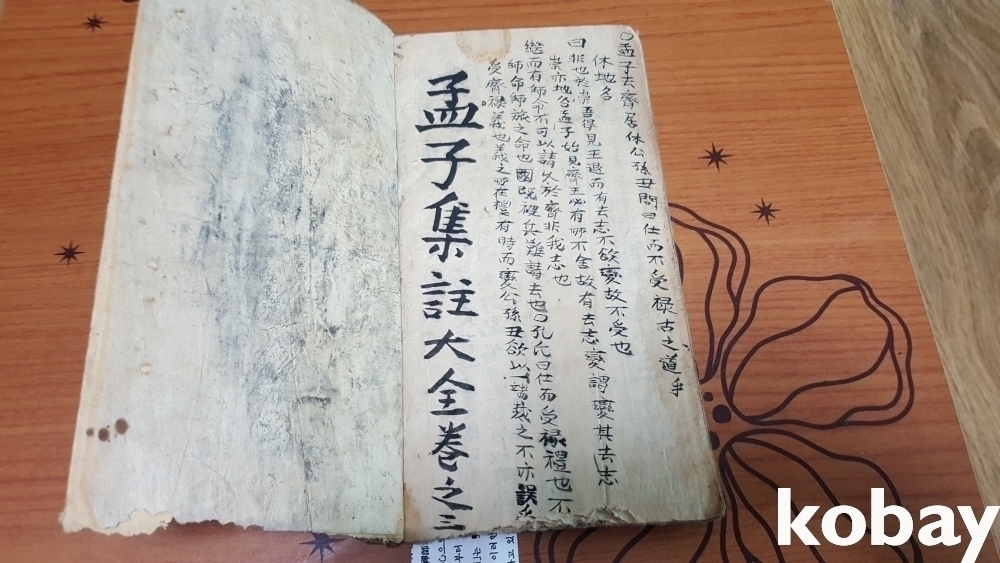 ○孟子去齊居休公孫丑問曰仕而不受祿古之道乎
休地名
曰非也於崇吾得見王退而有去志不欲變故不受也
崇亦地名孟子始見齊王必有所不合故有去志變謂變其去志
繼而有師命不可以請久於齊非我志也
師命師旅之命也國旣被兵難請去也○孔氏曰仕而受祿禮也不
受齊祿義也義之所在禮有時而變公孫丑欲以一端裁之不亦誤乎
孟子集註大全卷之三
kobay